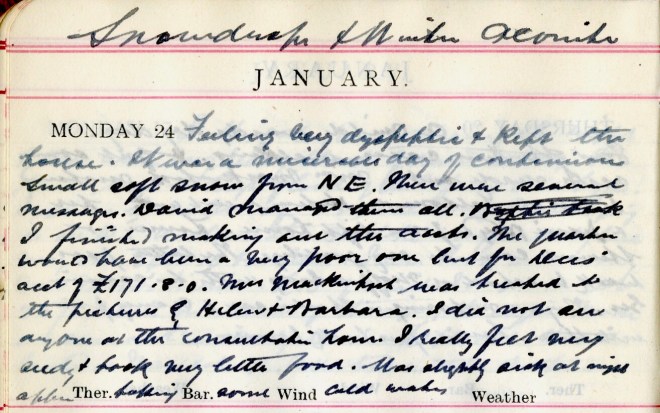 Snowdrops & Winter Aconite
JANUARY.
MONDAY 24 Feeling very dyspeptic & kept the
house. It was a miserable day of continuous
small soft snow from N E. There were several
messages. David managed them all.
I finished making out the accts. The quarter
would have been a very poor one but for
acct of £171-8-0. Miss Mackintosh was treated to
the pictures by Helen & Barbara. I did not see
anyone at the consultation hour. I really feel very
seedy & took very little food. Was slightly sick at night
after Ther. taking Bar. some Wind cold water Weather